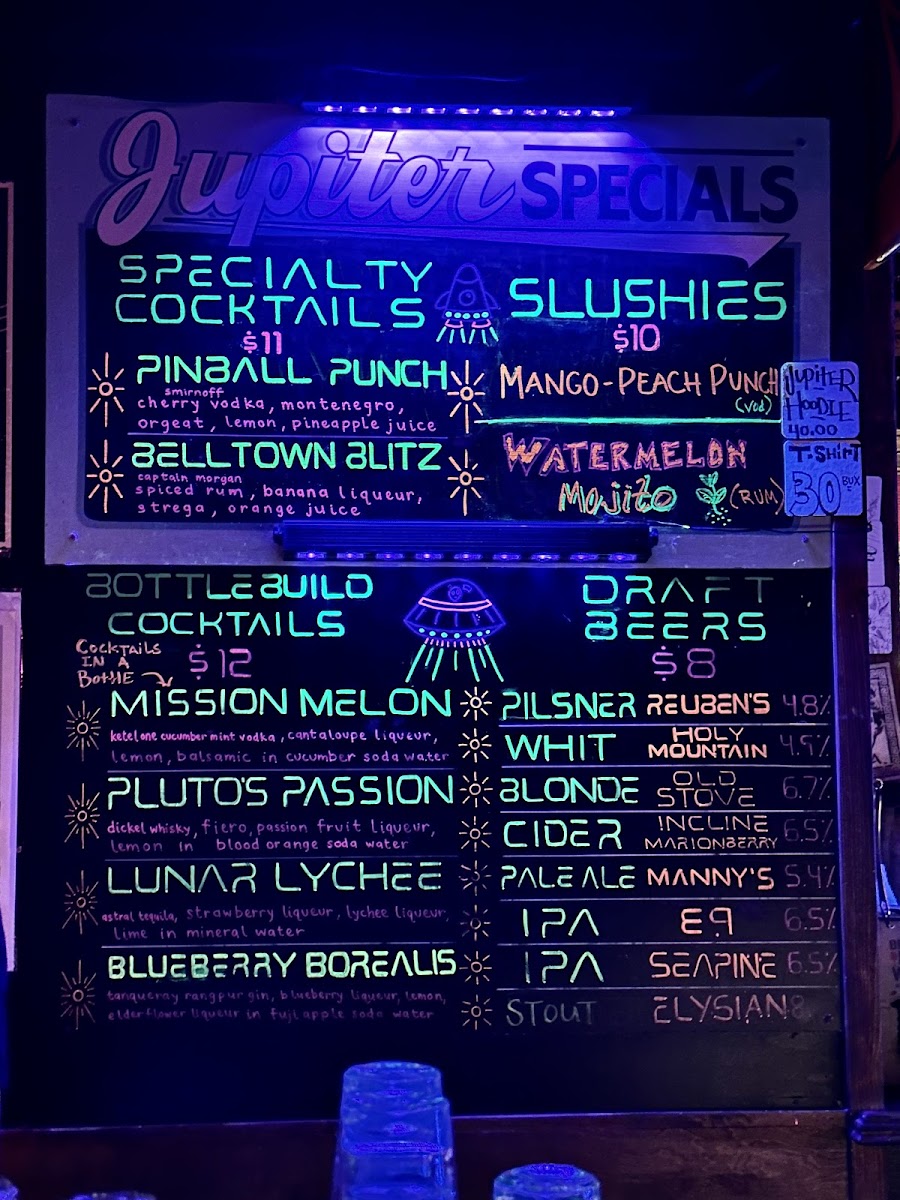 Jupiter SPECIALS
SPECIALTY
COCKTAILS
$11
PINBALL PUNCH
smirnoff
cherry vodka, montenegro,
orgeat, lemon, pineapple juice
BELLTOWN BLITZ
captain morgan
spiced rum, banana liqueur,
strega, orange juice
SLUSHIES
$10
MANGO-PEACH PUNCH
(vod)
WATERMELON
Mojito (RUM)
JUPITER
HOODIE
40.00
T-SHIRT
30 BUX
BOTTLE BUILD
COCKTAILS
COCKTAILS
IN A
BOTTLE
$12
MISSION MELON
ketel one cucumber mint vodka, cantaloupe liqueur,
lemon, balsamic in cucumber soda water
PLUTO'S PASSION
dickel whisky, fiero, passion fruit liqueur,
lemon in blood orange soda water
LUNAR LYCHEE
astral tequila, strawberry liqueur, lychee liqueur,
lime in mineral water
BLUEBERRY BOREALIS
tanqueray rangpur gin, blueberry liqueur, lemon,
elderflower liqueur in fuji apple soda water
DRAFT
BEERS
$8
PILSNER REUBEN'S 4.8%
WHIT HOLY MOUNTAIN 4.5%
BLONDE OLD STOVE 6.7%
CIDER INCLINE MARIONBERRY 6.5%
PALE ALE MANNY'S 5.4%
IPA E9 6.5%
IPA SEAPINE 6.5%
STOUT ELYSIAN